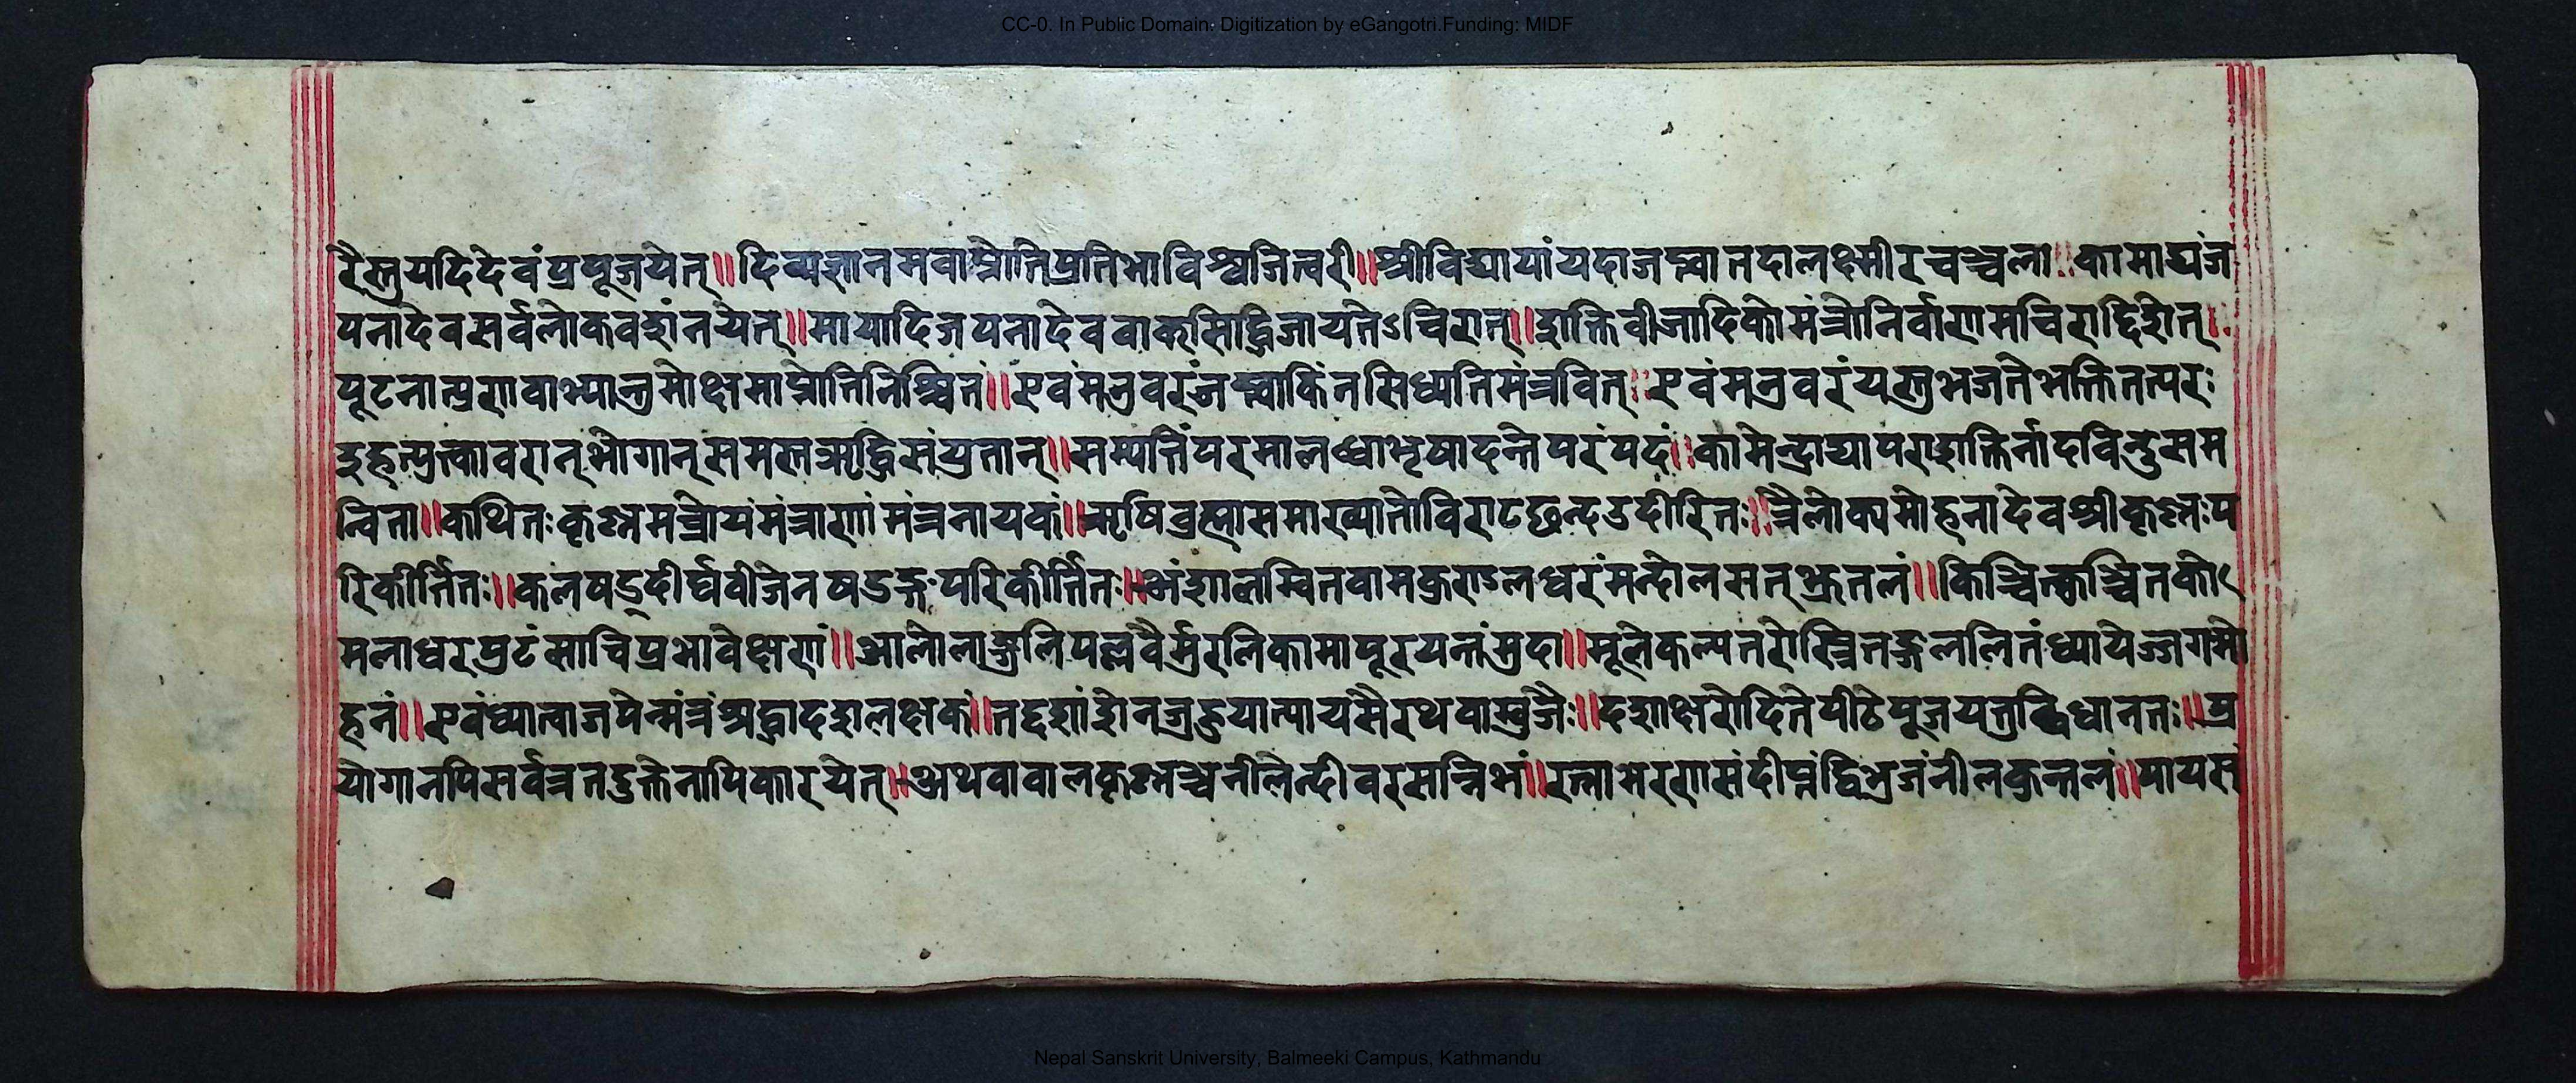 CC-0. In Public Domain. Digitization by eGangotri.Funding: MIDF
रैस्तुयदिदेवंप्रपूजयेत्॥दिव्यज्ञानमवाप्नोतिप्रतिभाविश्वजित्वरी॥श्रीविद्यायांयदाजप्त्वातदालक्ष्मीरचञ्चला॥कामाद्यंज
पनादेवसर्वलोकवशंनयेत्॥मायादिजपनादेववाक्सिद्धिजायतेऽचिरात्॥शक्तिवीजादिकोमंत्रोनिर्वाणमचिराद्दिशेत्॥
पूटनात्प्रणवाभ्यान्तुमोक्षमाप्नोतिनिश्चितं॥एवंमन्त्रवरंजप्त्वाकिंनसिध्यतिमंत्रवित्॥एवंमन्त्रवरंयस्तुभजतेभक्तितत्परः
इहत्प्रुत्क्तावरान्भोगान्समस्तऋद्धिसंयुतान्॥सम्पत्तिंपरमालब्धाभृषादन्तेपरंपदं॥कामेन्द्राद्यापराशक्तिर्नादविन्दुसम
न्विता॥कथितःकृष्णमन्त्रोयंमंत्राणांमंत्रनायकं॥ऋषिब्रह्मासमाख्यातोविराटछन्दउदीरितः॥त्रैलोक्यमोहनादेवश्रीकृष्णःप
रिकीर्त्तितः॥कलषड्दीर्घवीजेनषडङ्गपरिकीर्त्तितः॥अंशालम्वितवामकुण्डलधरंमन्दोलसत्भ्रूतलं॥किञ्चित्कुञ्चितको
मलाधरपुटंसाचिप्रभावेक्षणं॥आलोलाङ्गुलिपल्लवैर्मुरलिकामापूरयन्तंमुदा॥मूलेकल्पतरोस्त्रितङ्गललितंध्यायेज्जगमो
हनं॥एवंध्यात्वाजपेन्मंत्रंअष्टादशलक्षकं॥तद्दशांशेनजुहुयात्पायसैरथवाम्बुजैः॥दशाक्षरोदितेपीठेपूजयत्तद्विधानतः॥प्र
योगानपिसर्वत्रतदुक्तेनापिकारयेत्॥अथवावालकृष्णञ्चनीलेन्दीवरसन्निभं॥रत्नाभरणसंदीप्तंद्विभुजंनीलकुन्तलं॥पायस
Nepal Sanskrit University, Balmeeki Campus, Kathmandu